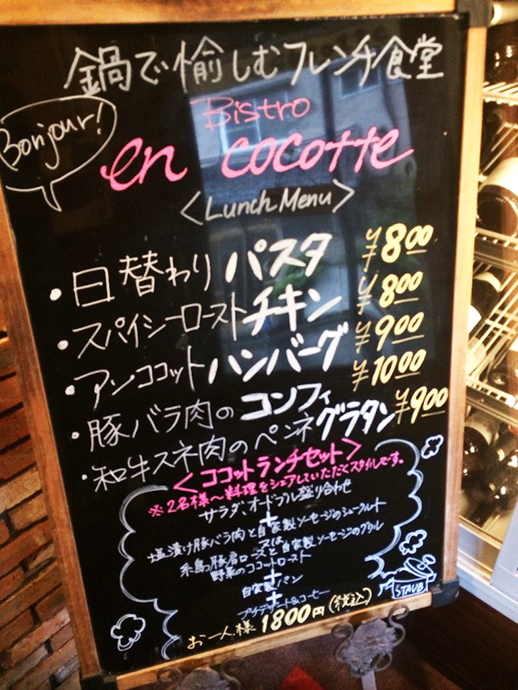 鍋で愉しむフレンチ食堂
Bonjour!
Bistro
en cocotte
<Lunch Menu>
・日替わりパスタ ¥800
・スパイシーローストチキン ¥800
・アンココットハンバーグ ¥900
・豚バラ肉のコンフィ ¥1000
・和牛スネ肉のペンネグラタン ¥900
<ココットランチセット>
※2名様〜料理をシェアしていただくスタイルです。
サラダオードブル盛り合わせ
+
塩漬け豚バラ肉と自家製ソーセージのシュークルート
又は
糸島豚肩ロースと自家製ソーセージのグリル
野菜のココットロースト
+
自家製パン
+
プチデザート&コーヒー
お一人様 1800円(税込)
STAUB